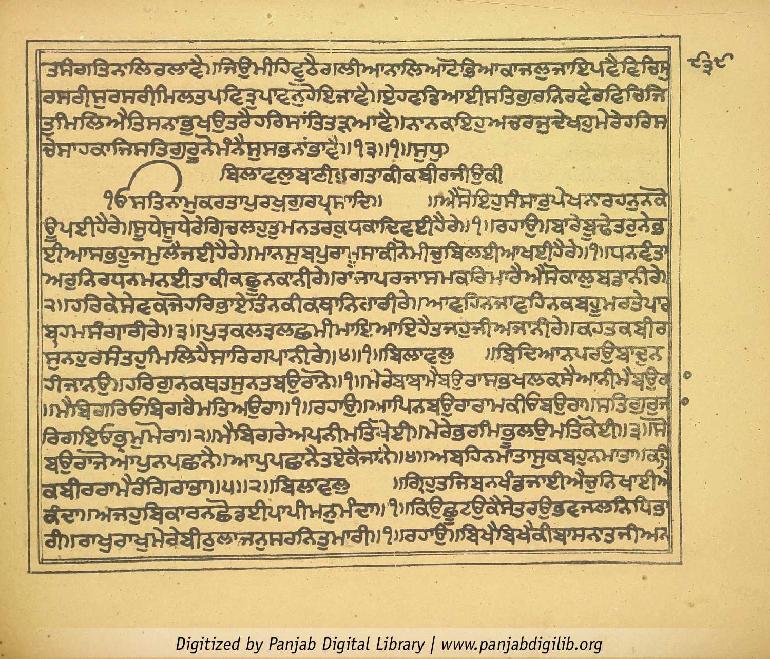 ਤਸੰਗਤਿਨਾਲਿਰਲਾਟੈ॥ਜਿਉਮੀਹਿਵੁਠੈਗਲੀਆਨਾਲਿਆਟੋਭਿਆਕਾਜਲੁਜਾਇਪਵੈਵਿਚਿਸੁ
ਰਸਰੀਸੁਰਸਰੀਮਿਲਤਪਵਿਤ੍ਰੁਪਾਵਨੁਹੋਇਜਾਵੈ॥ਏਹਵਡਿਆਈਸਤਿਗੁਰਨਿਰਵੈਰਵਿਚਿਜਿ
ਤੁਮਿਲਿਐਤਿਸਨਾਭੁਖਉਤਰੈਹਰਿਸਾਂਤਿਤੜਆਵੈ॥ਨਾਨਕਇਹੁਅਚਰਜੁਦੇਖਹੁਮੇਰੇਹਰਿਸ
ਚੇਸਾਹਕਾਜਿਸਤਿਗੁਰੂਨੋਮੰਨੈਸੁਸਭਨਾਂਭਾਵੈ॥੧੩॥੧॥ਸੁਧੁ
ਬਿਲਾਵਲੁਬਾਣੀਭਗਤਾਕੀਕਬੀਰਜੀਉਕੀ
ੴਸਤਿਨਾਮੁਕਰਤਾਪੁਰਖੁਗੁਰਪ੍ਰਸਾਦਿ॥ ॥ਐਸੋਇਹੁਸੰਸਾਰੁਪੇਖਨਾਰਹਨੁਨਕੋ
ਊਪਈਹੈਰੇ॥ਸੂਧੇਸੂਧੇਰੇਗਿਚਲਹੁਤੁਮਨਤਰਕੁਧਕਾਦਿਵਈਹੈਰੇ॥੧॥ਰਹਾਉ॥ਬਾਰੇਬੂਢੇਤਰੁਨੇਭ
ਈਆਸਭਹੂਜਮੁਲੈਜਈਹੈਰੇ॥ਮਾਨਸੁਬਪੁਰਾਮੂਸਾਕੀਨੋਮੀਚੁਬਿਲਈਆਖਈਹੈਰੇ॥੧॥ਧਨਵੰਤਾ
ਅਰੁਨਿਰਧਨਮਨਈਤਾਕੀਕਛੂਨਕਾਨੀਰੇ॥ਰਾਜਾਪਰਜਾਸਮਕਰਿਮਾਰੈਐਸੋਕਾਲੁਬਡਾਨੀਰੇ॥
੨॥ਹਰਿਕੇਸੇਵਕਜੋਹਰਿਭਾਏਤਿੰਨਕੀਕਥਾਨਿਰਾਰੀਰੇ॥ਆਵਹਿਨਜਾਵਹਿਨਕਬਹੂਮਰਤੇਪਾਰ
ਬ੍ਰਹਮਸੰਗਾਰੀਰੇ॥੩॥ਪੁਤ੍ਰਕਲਤ੍ਰਲਛਮੀਮਾਇਆਇਹੈਤਜਹੁਜੀਅਜਾਨੀਰੇ॥ਕਹਤਕਬੀਰ
ਸੁਨਹੁਰੇਸੰਤਹੁਮਿਲਿਹੈਸਾਰਿਗਪਾਨੀਰੇ॥੪॥੧॥ਬਿਲਾਵਲੁ ॥ਬਿਦਿਆਨਪਰਉਬਾਦੁਨ
ਹੀਜਾਨਉ॥ਹਰਿਗੁਨਕਥਤਸੁਨਤਬਉਰਾਨੋ॥੧॥ਮੇਰੇਬਾਬਾਮੈਬਉਰਾਸਭਖਲਕਸੈਆਨੀਮੈਬਉਰਾ
॥ਮੈਬਿਗਰਿਓਬਿਗਰੈਮਤਿਅਉਰਾ॥੧॥ਰਹਾਉ॥ਆਪਿਨਬਉਰਾਰਾਮਕੀਓਬਉਰਾ॥ਸਤਿਗੁਰੁਜ
ਰਿਗਇਓਭ੍ਰਮੁਮੋਰਾ॥੨॥ਮੈਬਿਗਰੇਅਪਨੀਮਤਿਖੋਈ॥ਮੇਰੇਭਰਮਿਭੂਲਉਮਤਿਕੋਈ॥੩॥ਸੋ
ਬਉਰਾਜੋਆਪੁਨਪਛਾਨੈ॥ਆਪੁਪਛਾਨੈਤਏਕੈਜਾਨੈ॥੪॥ਅਬਹਿਨਮਾਤਾਸੁਕਬਹੁਨਮਾਤਾ॥ਕਹਿ
ਕਬੀਰਰਾਮੈਰੰਗਿਰਾਤਾ॥੫॥੨॥ਬਿਲਾਵਲੁ ॥ਗ੍ਰਿਹੁਤਜਿਬਨਖੰਡਜਾਈਐਚੁਨਿਖਾਈਐ
ਕੰਦਾ॥ਅਜਹੁਬਿਕਾਰਨਛੋਡਈਪਾਪੀਮਨੁਮੰਦਾ॥੧॥ਕਿਉਛੂਟਉਕੈਸੇਤਰਉਭਵਜਲਨਿਧਿਭਾ
ਰੀ॥ਰਾਖੁਰਾਖੁਮੇਰੇਬੀਠੁਲਾਜਨੁਸਰਨਿਤੁਮਾਰੀ॥੧॥ਰਹਾਉ॥ਬਿਖੈਬਿਖੈਕੀਬਾਸਨਾਤਜੀਅਨ
Digitized by Panjab Digital Library | www.panjabdigilib.org